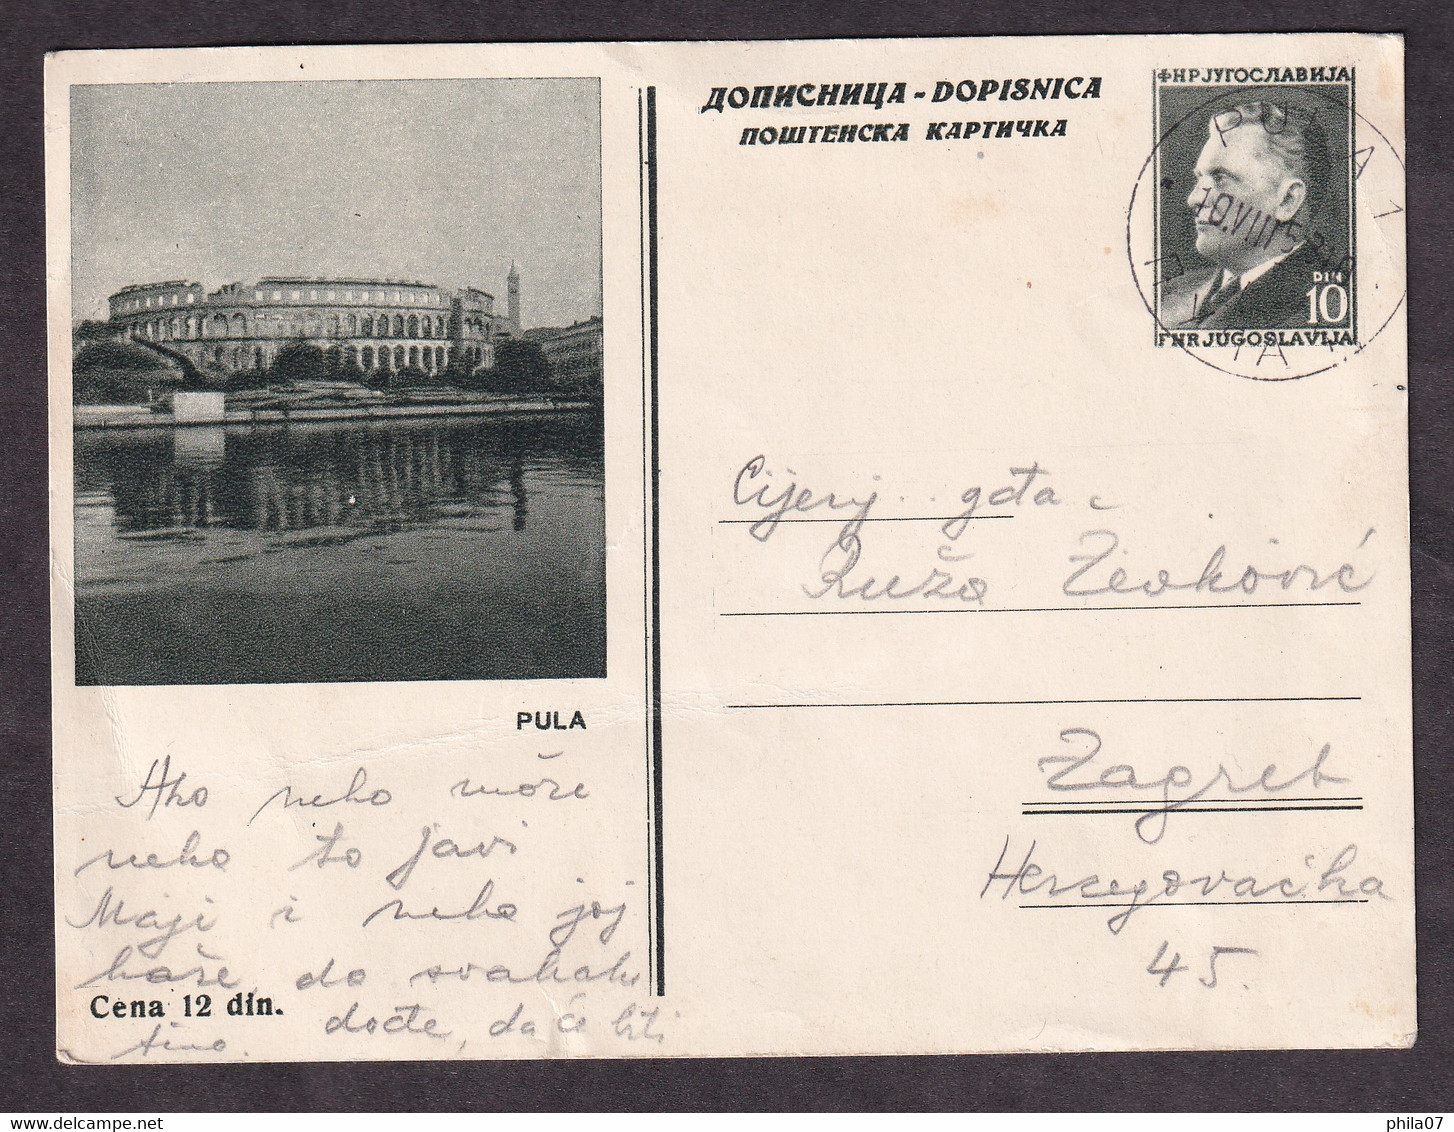 ДОПИСНИЦА - DOPISNICA
ПОШТЕНСКА КАРТИЧКА
ФНРЈУГОСЛАВИЈА
PULA 1
10.VIII
DIN
10
FNRJUGOSLAVIJA
Cijenj. gđa
Ruža Živković
Zagreb
Hercegovačka
45.
PULA
Ako neko može
neka to javi
Maji i neka joj
kaže, da svakako
dođe, da će biti
fino.
Cena 12 din.
delcampe.net
phila07